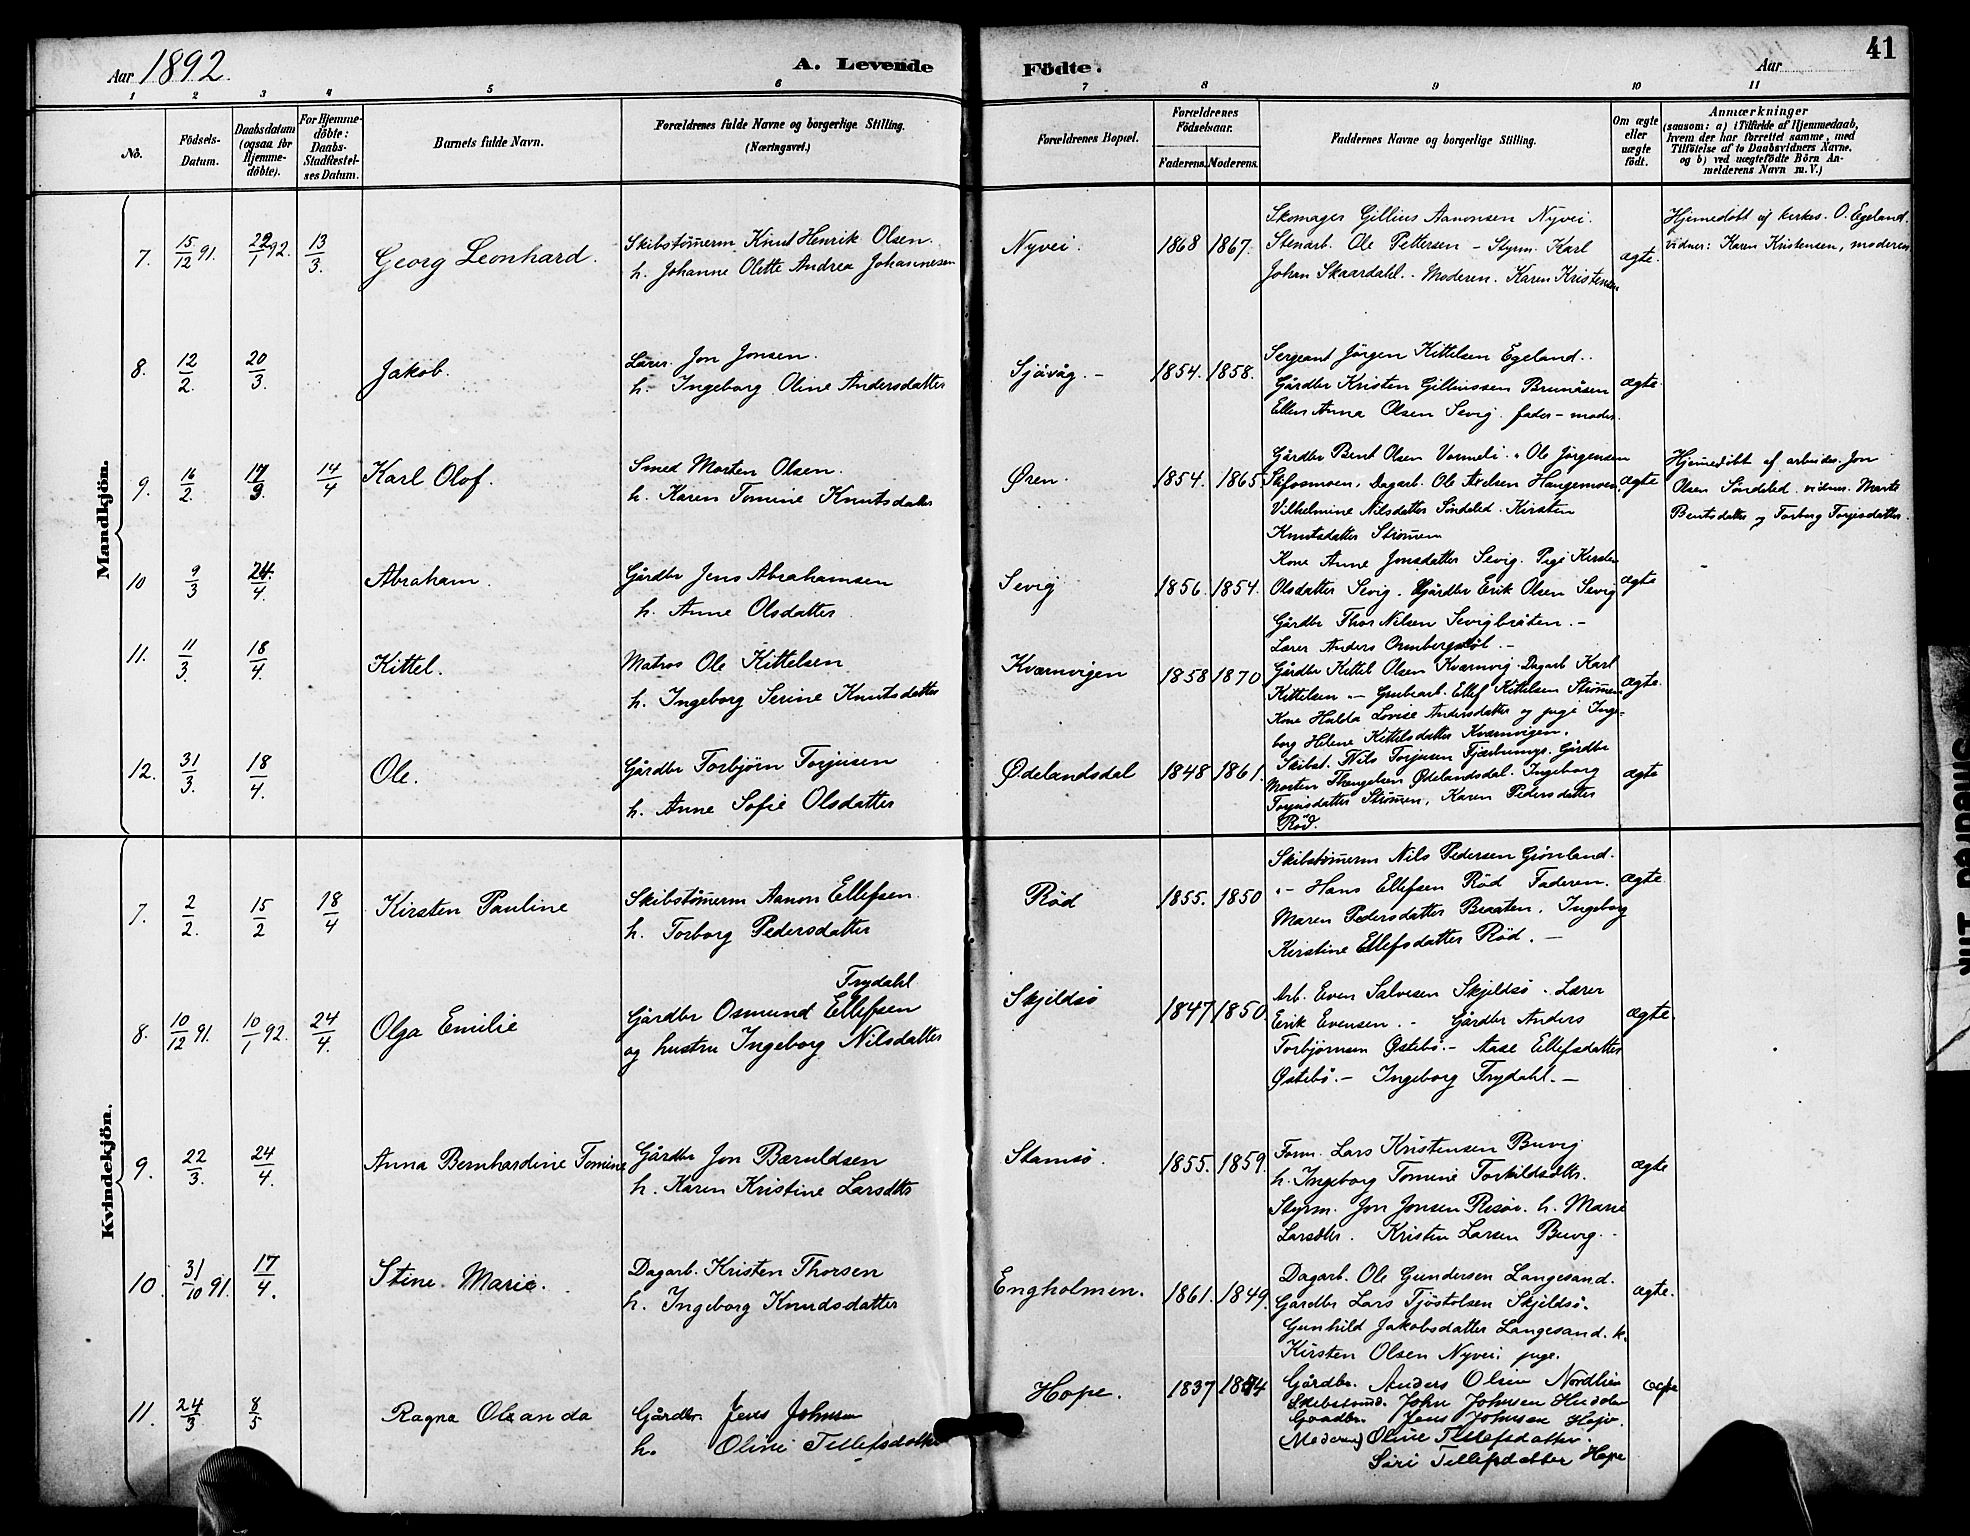 Aar 1892.
A. Levende
Födte.
Aar
41
1
2
3
4
5
6
7
8
9
10
11
No.
Födsels-
Datum.
Daabsdatum
(ogsaa for
Hjemme-
döbte).
For Hjemme-
döbte:
Daabs-
Stadfæstel-
ses Datum.
Barnets fulde Navn.
Forældrenes fulde Navne og borgerlige Stilling.
(Næringsvei.)
Forældrenes Bopæl.
Forældrenes
Födselsaar.
Faderens.
Moderens.
Faddernes Navne og borgerlige Stilling.
Om ægte
eller
uægte
födt.
Anmærkninger
(saasom: a) i Tilfælde af Hjemmedaab,
hvem der har forrettet samme, med
Tilföielse af to Daabsvidners Navne,
og b) ved uægtefödte Börn An-
melderens Navn m. V.)
Mandkjön.
7. 15/12 91. 22/1 92. 13/3. Georg Leonhard.
Skibstömerm Knut Henrik Olsen.
h. Johanne Olette Andrea Johannesen
Nyvei. 1868 1867.
Skomager Gillius Aanonsen Nyvei.
Stenarb. Ole Pettersen – Styrm. Karl
Johan Skaardahl. – Moderen. Karen Kristensen
ægte.
Hjemedöbt af kirkes. O. Egeland.
Vidner: Karen Kristensen, moderen
8. 12/2. 20/3. Jakob.
Lærer Jon Jonsen.
h. Ingeborg Oline Andersdatter
Sjåvåg. – 1854. 1858.
Sergeant Jörgen Kittelsen Egeland.
Gårdbr Kristen Gilliussen Brunåsen
Ellen Anna Olsen Sevig. fader – moder.
ægte.
9. 16/2. 17/3. 14/4 Karl Olof.
Smed Morten Olsen.
h. Karen Tomine Knutsdatter
Øren. 1854. 1865
Gårdbr Bent Olsen Varmeli. " Ole Jörgensen
Skifosmoen, Dagarb. Ole Axelsen Haugemoen,
Vilhelmine Nilsdatter Söndeled. Kirsten
Knutsdatter Strömen
ægte
Hjemedöbt af arbeider Jon
Olsen Söndeled. vidner. Marte
Bentsdatter og Torborg Torjusdatter.
10 9/3 24/4. Abraham.
Gårdbr Jens Abrahamsen
h. Anne Olsdatter.
Sevig 1856. 1854.
Kone Anne Jonsdatter Sevig. Pige Kirsten
Olsdatter Sevig. Gårdbr Erik Olsen Sevig
Gårdbr Thor Nilsen Sevigbråten. –
Lærer Anders Ormbergstöl. –
ægte
11. 11/3. 18/4. Kittel.
Matros Ole Kittelsen
h. Ingeborg Serine Knutsdatter
Kvarnvigen 1858 1870
Gårdbr Kettel Olsen Kvarnvig. Dagarb Karl
Kittelsen " – Grubearb. Ellef Kittelsen Strömen
Kone Hulda Lovise Andersdatter og pige Inge-
borg Helene Kittelsdatter Kvarnvigen.
ægte.
12. 31/3. 18/4. Ole.
Gårdbr Torbjörn Torjusen
h. Anne Sofie Olsdatter
Ødelandsdal 1848 1861.
Skibst. Nils Torjusen Fjærbunigs. Gårdbr
Morten Thengelsen Ødelandsdal. Ingeborg
Torjusdatter Strömen, Karen Pedersdatter
Röd.
ægte
Kvindekjön.
7. 2/2. 15/2 18/4 Kirsten Pauline
Skibstömerm Aanon Ellefsen.
h. Torborg Pedersdatter
Röd 1855. 1850
Skibstömerm Nils Pedersen Grönland.
" – Hans Ellefsen Röd Faderen.
Maren Pedersdatter Braaten. Ingeborg
Kirstine Ellefsdatter Röd. –
ægte.
8. 10/12 91. 10/1 92. 24/4. Olga Emilie
Trydahl
Gårdbr Osmund Ellefsen
og hustru Ingeborg Nilsdatter
Skjeldsö 1847 1850.
Arb. Even Salvesen Skjeldsö. Lærer
Erik Evensen. – Gårdbr Anders
Torbjörnsen Østebö. – Aase Ellefsdatter
Østebö. – Ingeborg Trydahl. –
ægte.
9. 22/3. 24/4. Anna Bernhardine Tomine
Gårdbr Jon Bæruldsen
h. Karen Kristine Larsdtr
Stamsö. 1855. 1859.
Tomm. Lars Kristensen Buvig
h. Ingeborg Tomine Torkildsdtr.
Styrm. Jon Jonsen Risör. h. Marie
Larsdtr. Kristen Larsen Buvig. –
ægte
10. 31/10 91. 17/4. Stine Marie.
Dagarb. Kristen Thorsen
h. Ingeborg Knudsdatter
Engholmen. 1861. 1849.
Dagarb. Ole Gundersen Langesand.
Gårdbr Lars Tjöstolsen Skjeldsö.
Gunhild Jakobsdatter Langesand. k.
Kirsten Olsen Nyvei. pige.
ægte.
11. 24/3 8/5 Ragna Oleanda
Gårdbr. Jens Johnsen
h. Oline Tellefsdatter
Hope. 1837 1854
Gårdbr. Anders Olsen Nordlien
Skibstømd. John Johnsen
Gaardbr. Jens Johnsen Hope.
(Moderen) Oline Tellefsdatter.
Siri Tellefsdatter Hope
ægte